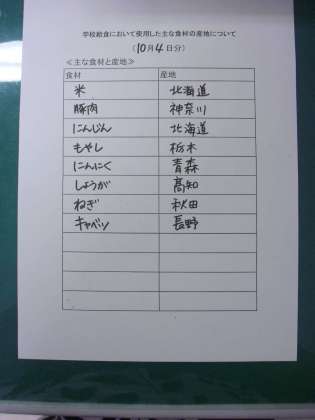 学校給食において使用した主な食材の産地について
(10月4日分)
≪主な食材と産地≫
食材 産地
米 北海道
豚肉 神奈川
にんじん 北海道
もやし 栃木
にんにく 青森
しょうが 高知
ねぎ 秋田
キャベツ 長野